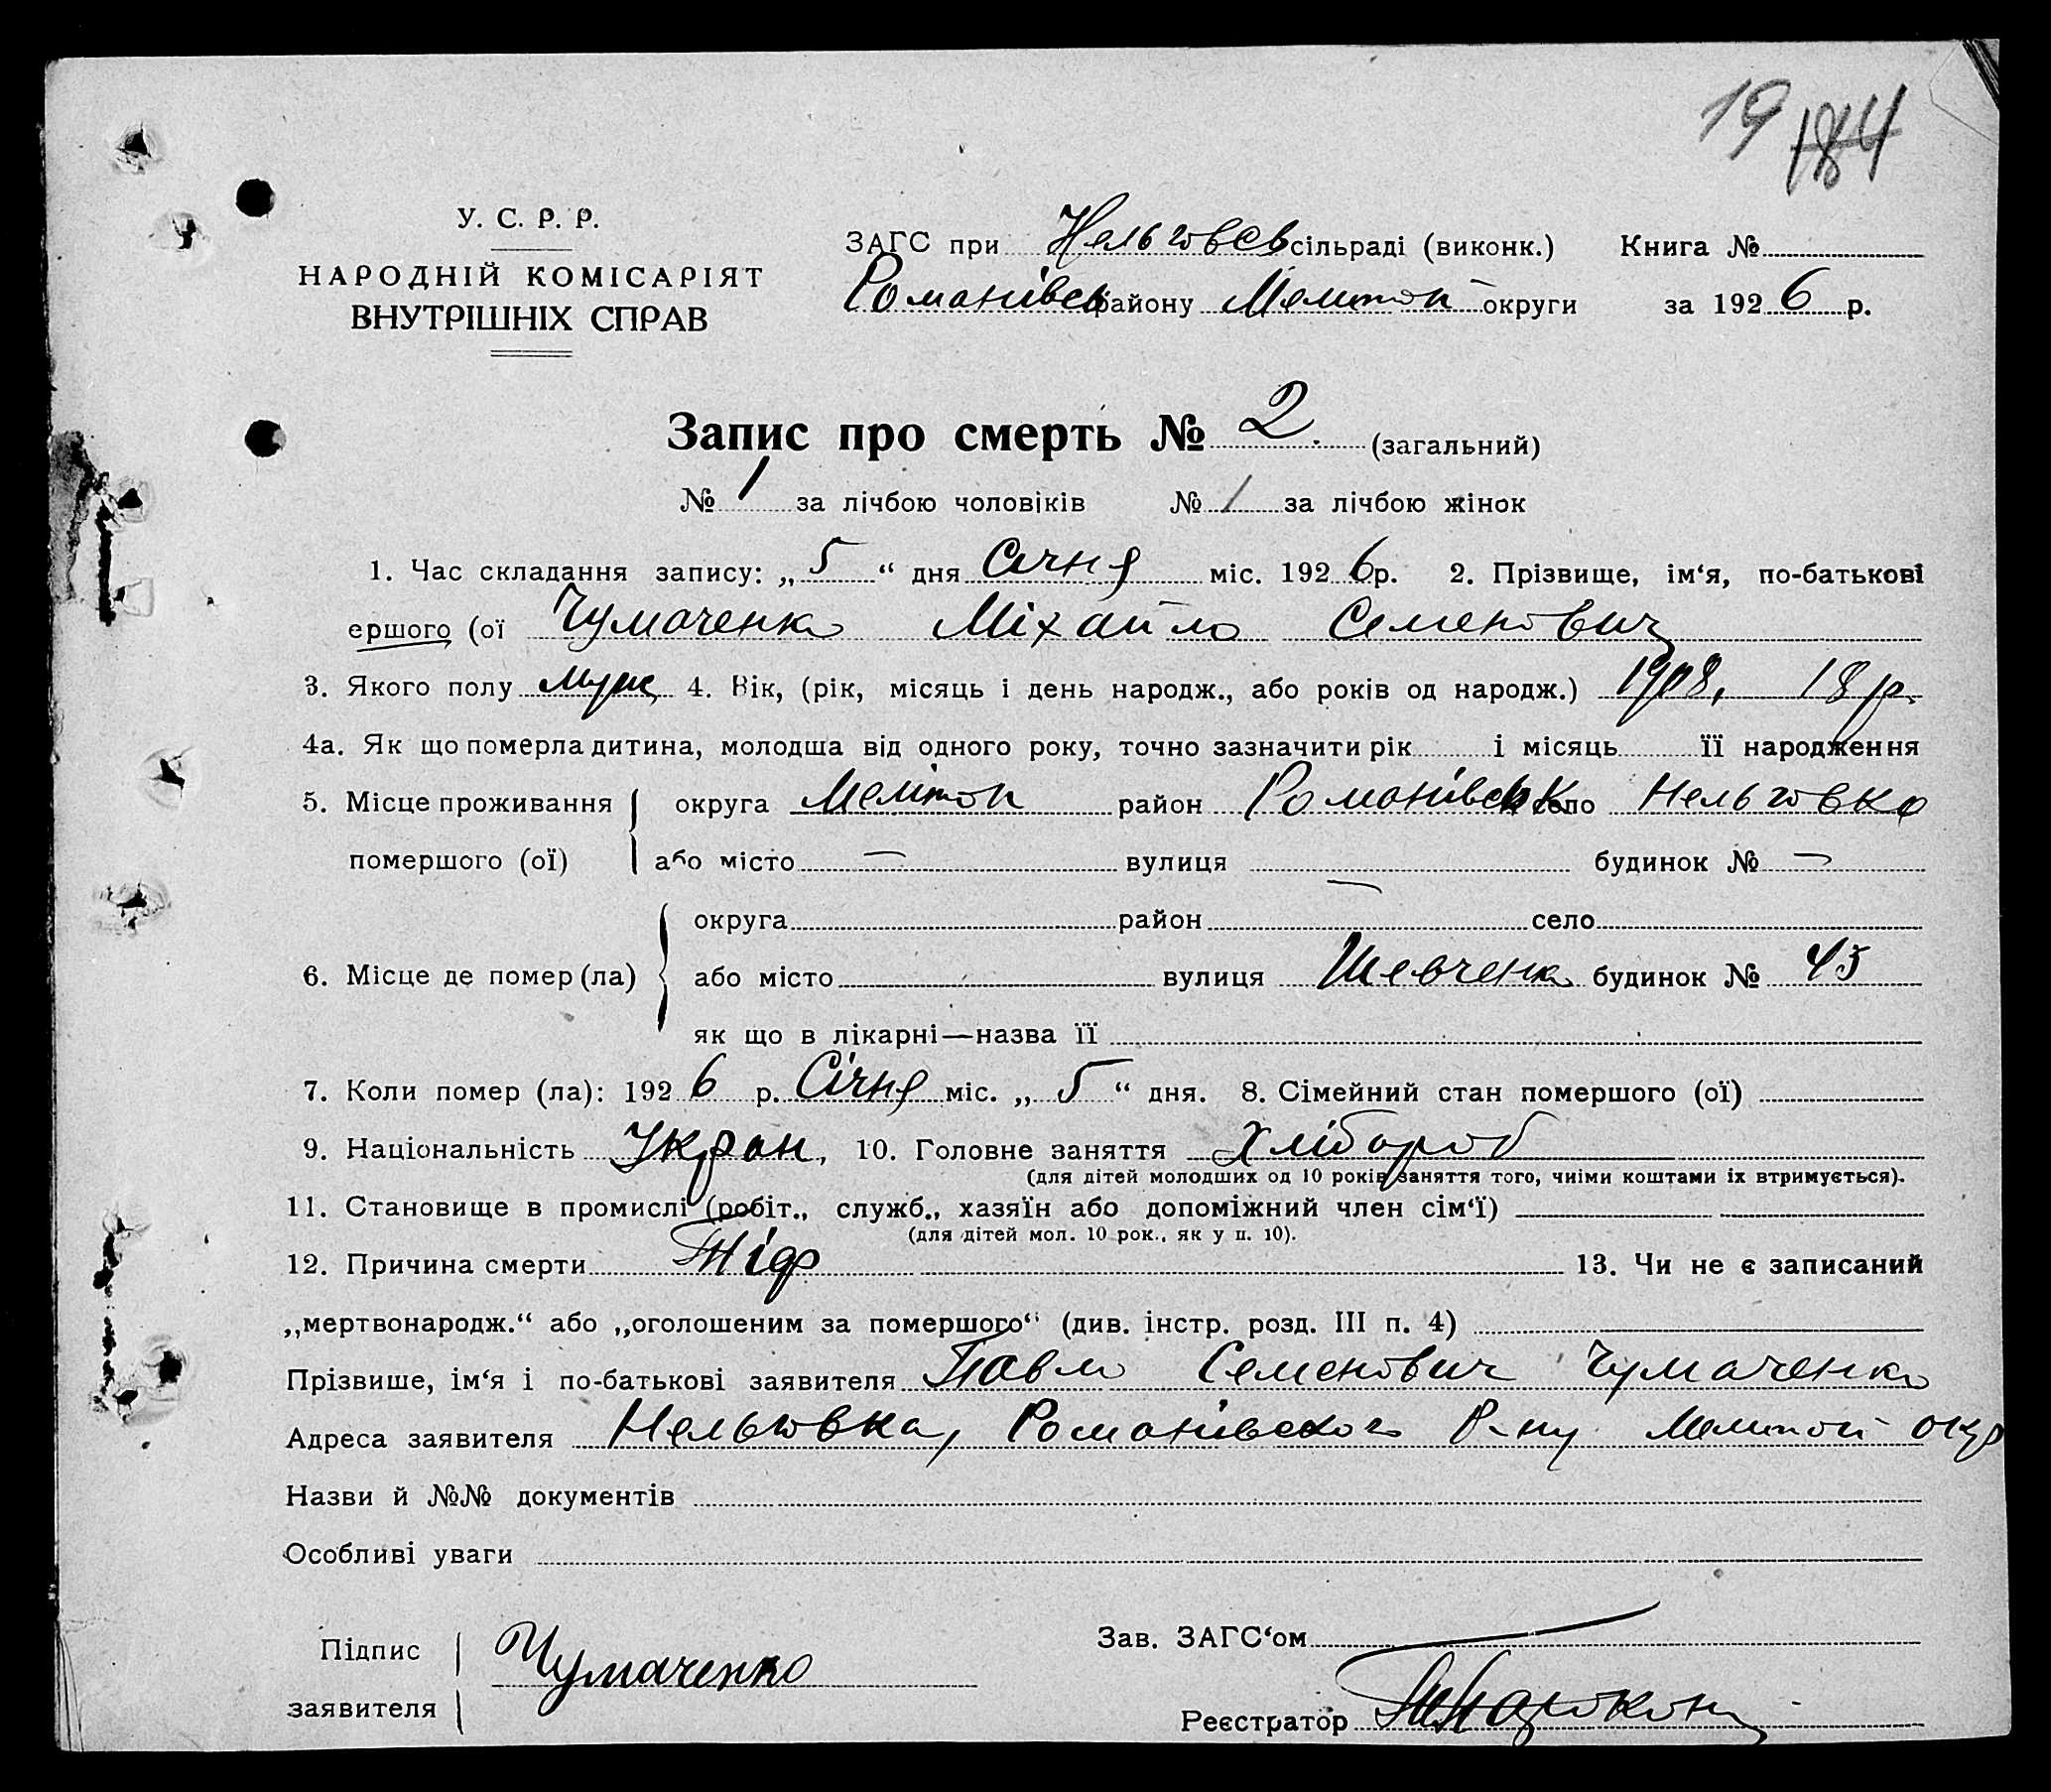 19 184
У. С. Р. Р.
НАРОДНІЙ КОМІСАРІЯТ
ВНУТРІШНІХ СПРАВ
ЗАГС при Нельговсв сільраді (виконк.) Книга №
Романівськ району Меліտоп округи за 1926 р.
Запис про смерть № 2. (загальний)
№ 1 за лічбою чоловіків № 1 за лічбою жінок
1. Час складання запису: „5“ дня Січня міс. 1926р. 2. Прізвище, ім‘я, по-батькові
ершого (ої Чумаченко Міхайло Семенович
3. Якого полу муж 4. Вік, (рік, місяць і день народж., або років од народж.) 1908, 18 р.
4а. Як що померла дитина, молодша від одного року, точно зазначити рік і місяць її народження
5. Місце проживання округа Меліտоп район Романівськ село Нельговка
помершого (ої) або місто — вулиця — будинок № —
округа район село
6. Місце де помер (ла) або місто вулиця Шевченка будинок № 45
як що в лікарні—назва її
7. Коли помер (ла): 1926 р. Січня міс. „5“ дня. 8. Сімейний стан помершого (ої)
9. Національність Укран, 10. Головне заняття Хлібороб
(для дітей молодших од 10 років заняття того, чиїми коштами їх втримується).
11. Становище в промислі (робіт., служб., хазяїн або допоміжний член сім‘ї)
(для дітей мол. 10 рок., як у п. 10).
12. Причина смерти Тіф 13. Чи не є записаний
„мертвонародж.“ або „оголошеним за помершого“ (див. інстр. розд. III п. 4)
Прізвише, ім‘я і по-батькові заявителя Павло Семенович Чумаченко
Адреса заявителя Нельговка, Романівського Р-ну Меліտоп окр
Назви й №№ документів
Особливі уваги
Підпис
заявителя Чумаченко
Зав. ЗАГС‘ом
Реєстратор